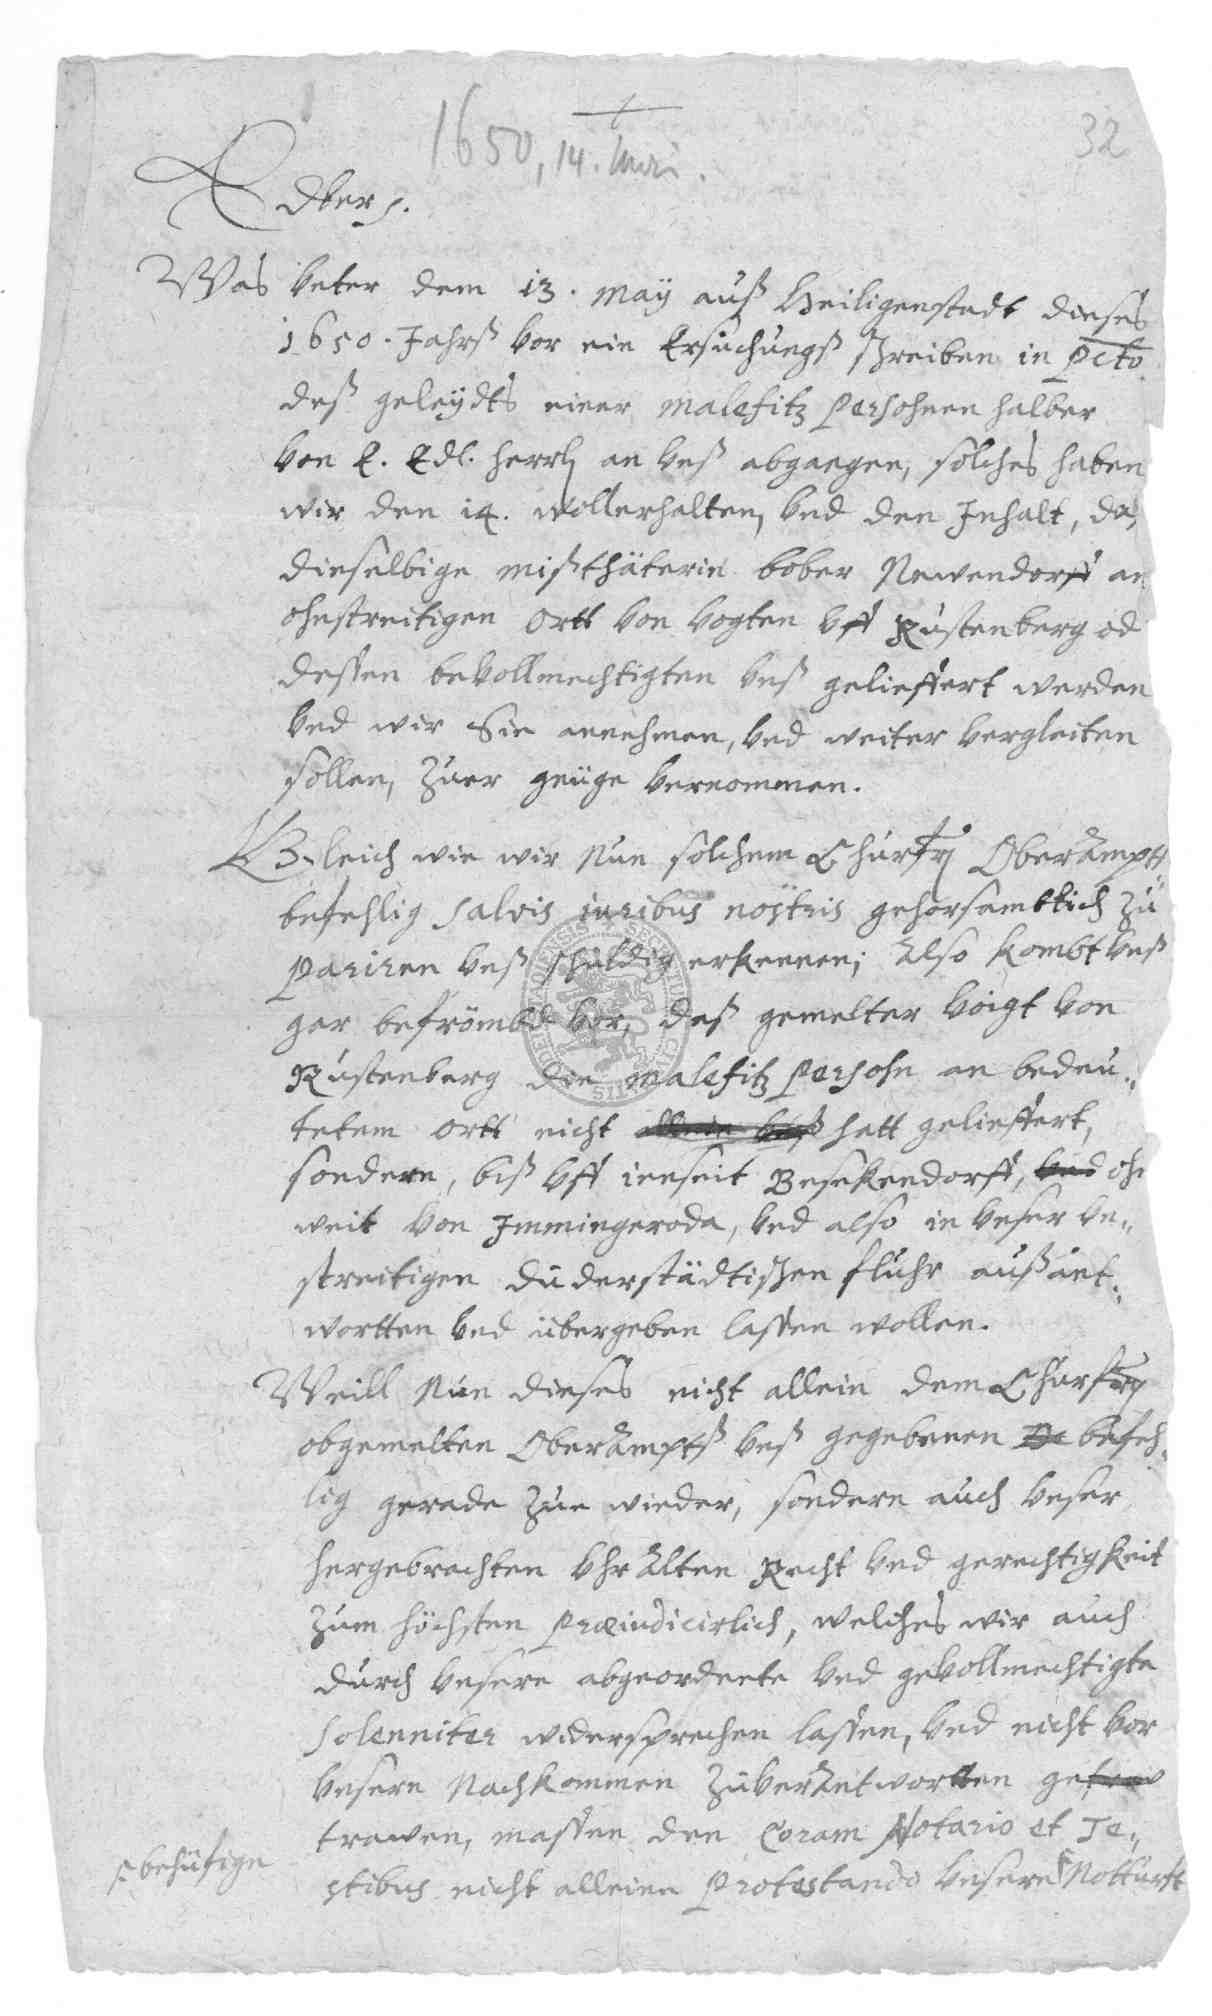 1650, 14. Junii.
32
Edler p.
Was vnter dem 13. Maÿ auß Heiligenstadt dieses
1650. Jahrß vor ein Ersuchungß schreiben in Pcto
deß geleÿdts einer Malefitz Persohnen halber
von E. Edl. Herrl an vnß abgangen, solches haben
wir den 14. wollerhalten, vnd den Inhalt, das
dieselbige mißthäterin bober Newendorff an
ohnstreitigen Ortt von Vogten vff Rustenberg od
dessen bevollmechtigten vnß gelieffert werden
vnd wir Sie annehmen, vnd weiter vergleiten
sollen, Zuer genüge vernommen.
Gleich wie wir Nun solchem Churfrl Oberämptß
befehlig salvis iuribus nostris gehorsamblich zu
Pariren vnß schuldig erkennen; Also kombt vnß
gar befrömbd vor, daß gemelter Voigt von
Rustenberg die Malefitz Persohn an bedeu„
tetem Ortt nicht allein vnß hatt gelieffert,
sondern, biß vff ienseit Besekendorff, vnd ohn
weit von Immingeroda, vnd also in vnser vn„
streitigen Duderstädtischen fluhr außant„
wortten vnd übergeben lassen wollen.
Weill Nun dieses nicht allein dem Churfrl
obgemelten Oberämptß vnß gegebenen Be befeh„
lig gerade Zue wieder, sondern auch vnser
hergebrachten Vhralten Recht vnd gerechtigkeit
Zum höchsten Præiudicirlich, welches wir auch
durch vnsere abgeordnete vnd gevollmechtigte
Solenniter widersprechen lassen, vnd nicht vor
vnsern Nachkommen Zuverantwortten getraw
trawen, massen den Coram Notario et Te„
stibus nicht alleine Protestando vnsere Notturft
behüfige
SIGILLUM SECRETUM CIVITATIS DUDERSTADIENSIS